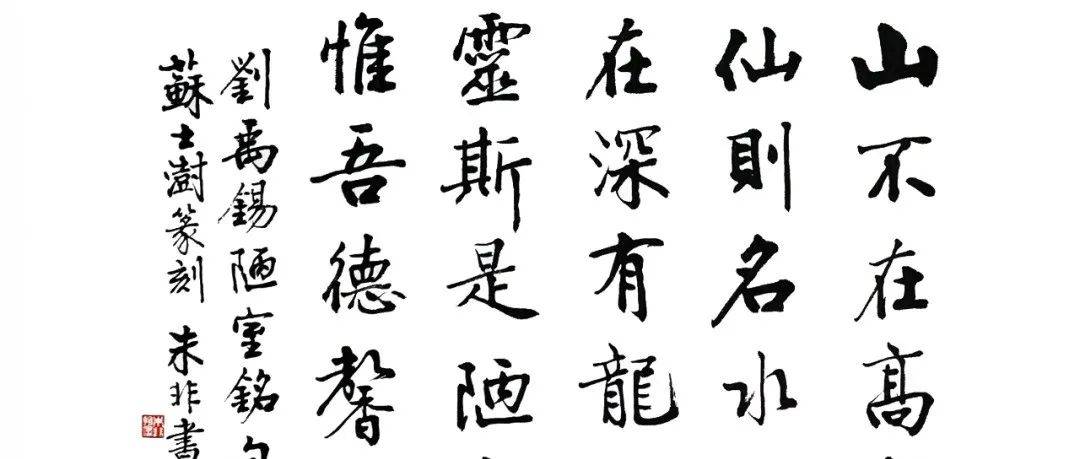 山不在高
仙則名水
在深有龍
靈斯是陋
惟吾德馨
劉禹錫陋室銘
蘇士澍篆刻 朱非書